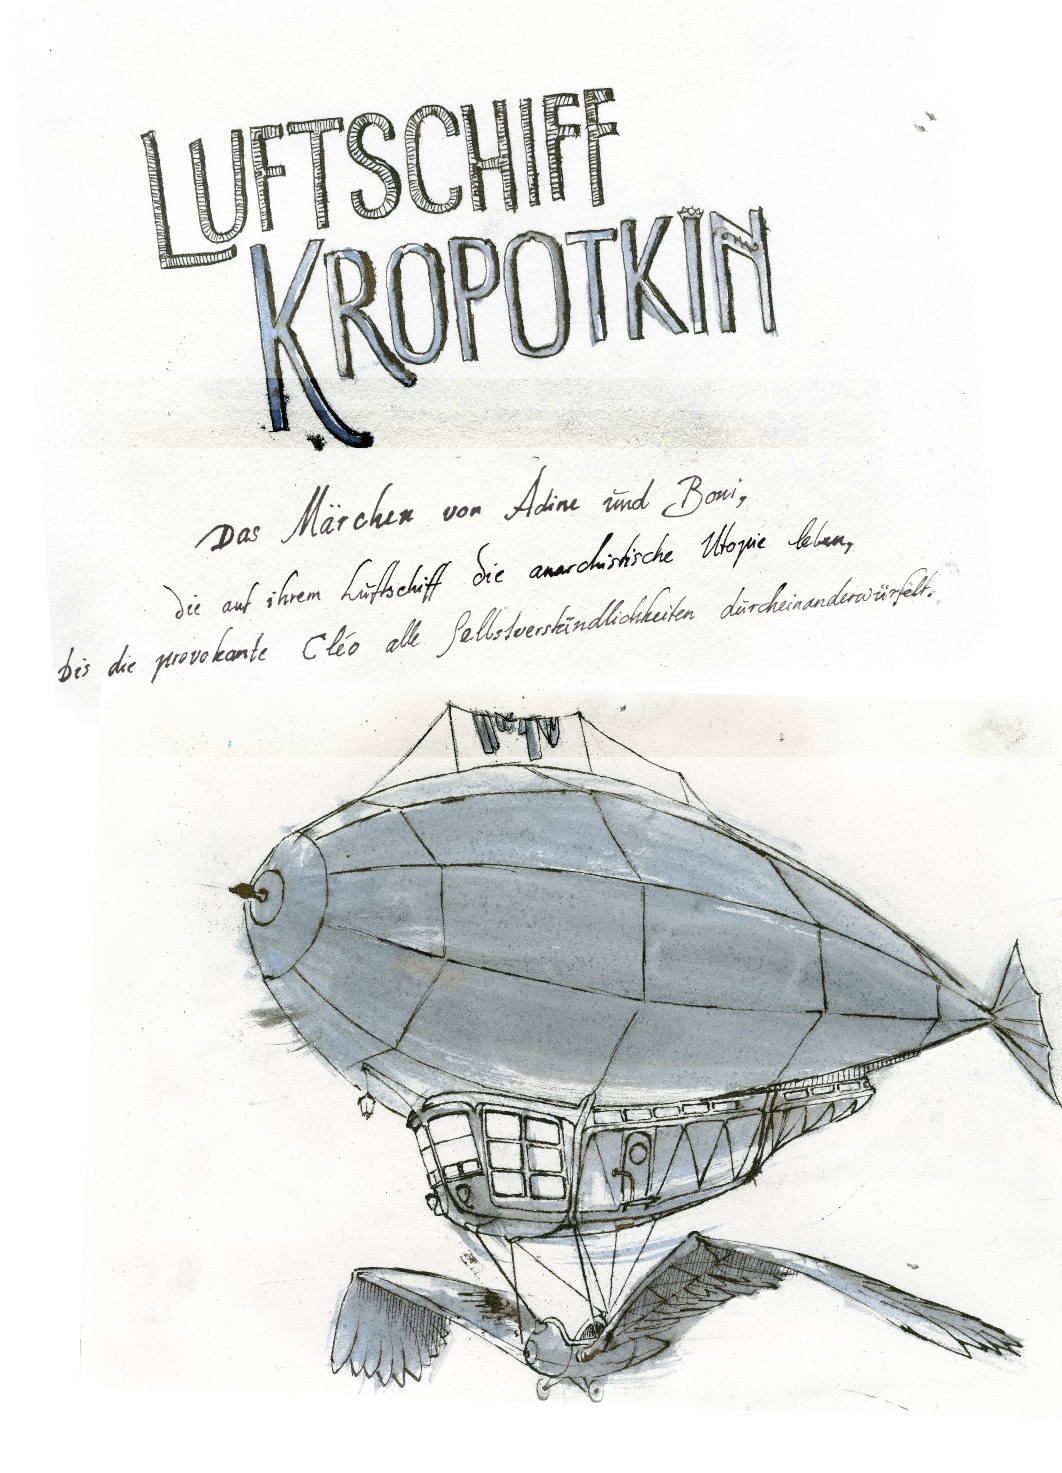 LUFTSCHIFF
KROPOTKIN
Das Märchen von Adine und Boni,
die auf ihrem Luftschiff die anarchistische Utopie leben,
bis die provokante Cléo alle Selbstverständlichkeiten durcheinanderwürfelt.